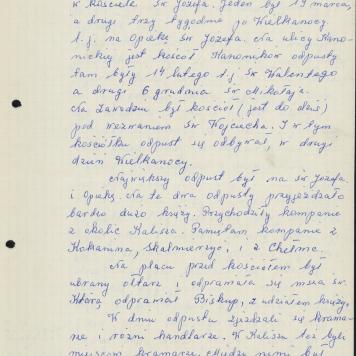 w kościele św. Józefa. Jeden był 19 marca,
a drugi trzy tygodnie po Wielkanocy
t.j. na Opiekę św Józefa. Na ulicy Kano-
nickiej jest kościół Kanoników odpusty
tam były 14 lutego t.j. św Walentego
a drugi 6 grudnia św Mikołaja.
Na Zawodziu był kościół (jest do dziś)
pod wezwaniem św Wojciecha. I w tym
kościółku odpust się odbywał, w drugi
dzień Wielkanocy.
Największy odpust był na św Józefa
i Opiekę. Na te dwa odpusty przyjeżdżało
bardzo dużo księży. Przychodziły kompanie
z okolic Kalisza. Pamiętam kompanie z
Kokanina, Skalmierzyc, i z Chełmc.
Na placu przed kościołem był
ubrany ołtarz i odprawiała się msza św.
Którą odprawiał Biskup, z udziałem księży.
W dniu odpustu zjeżdżali się krama-
rze i różni handlarze. W Kaliszu też byli
miejscowi kramarze. Między nimi był